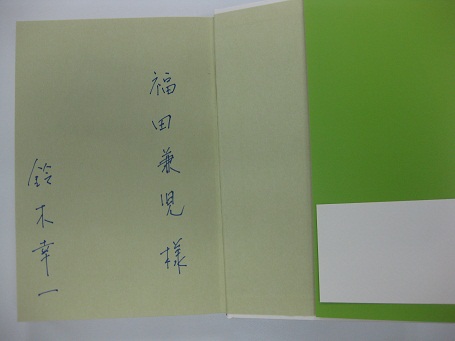 福田兼児様
鈴木幸一